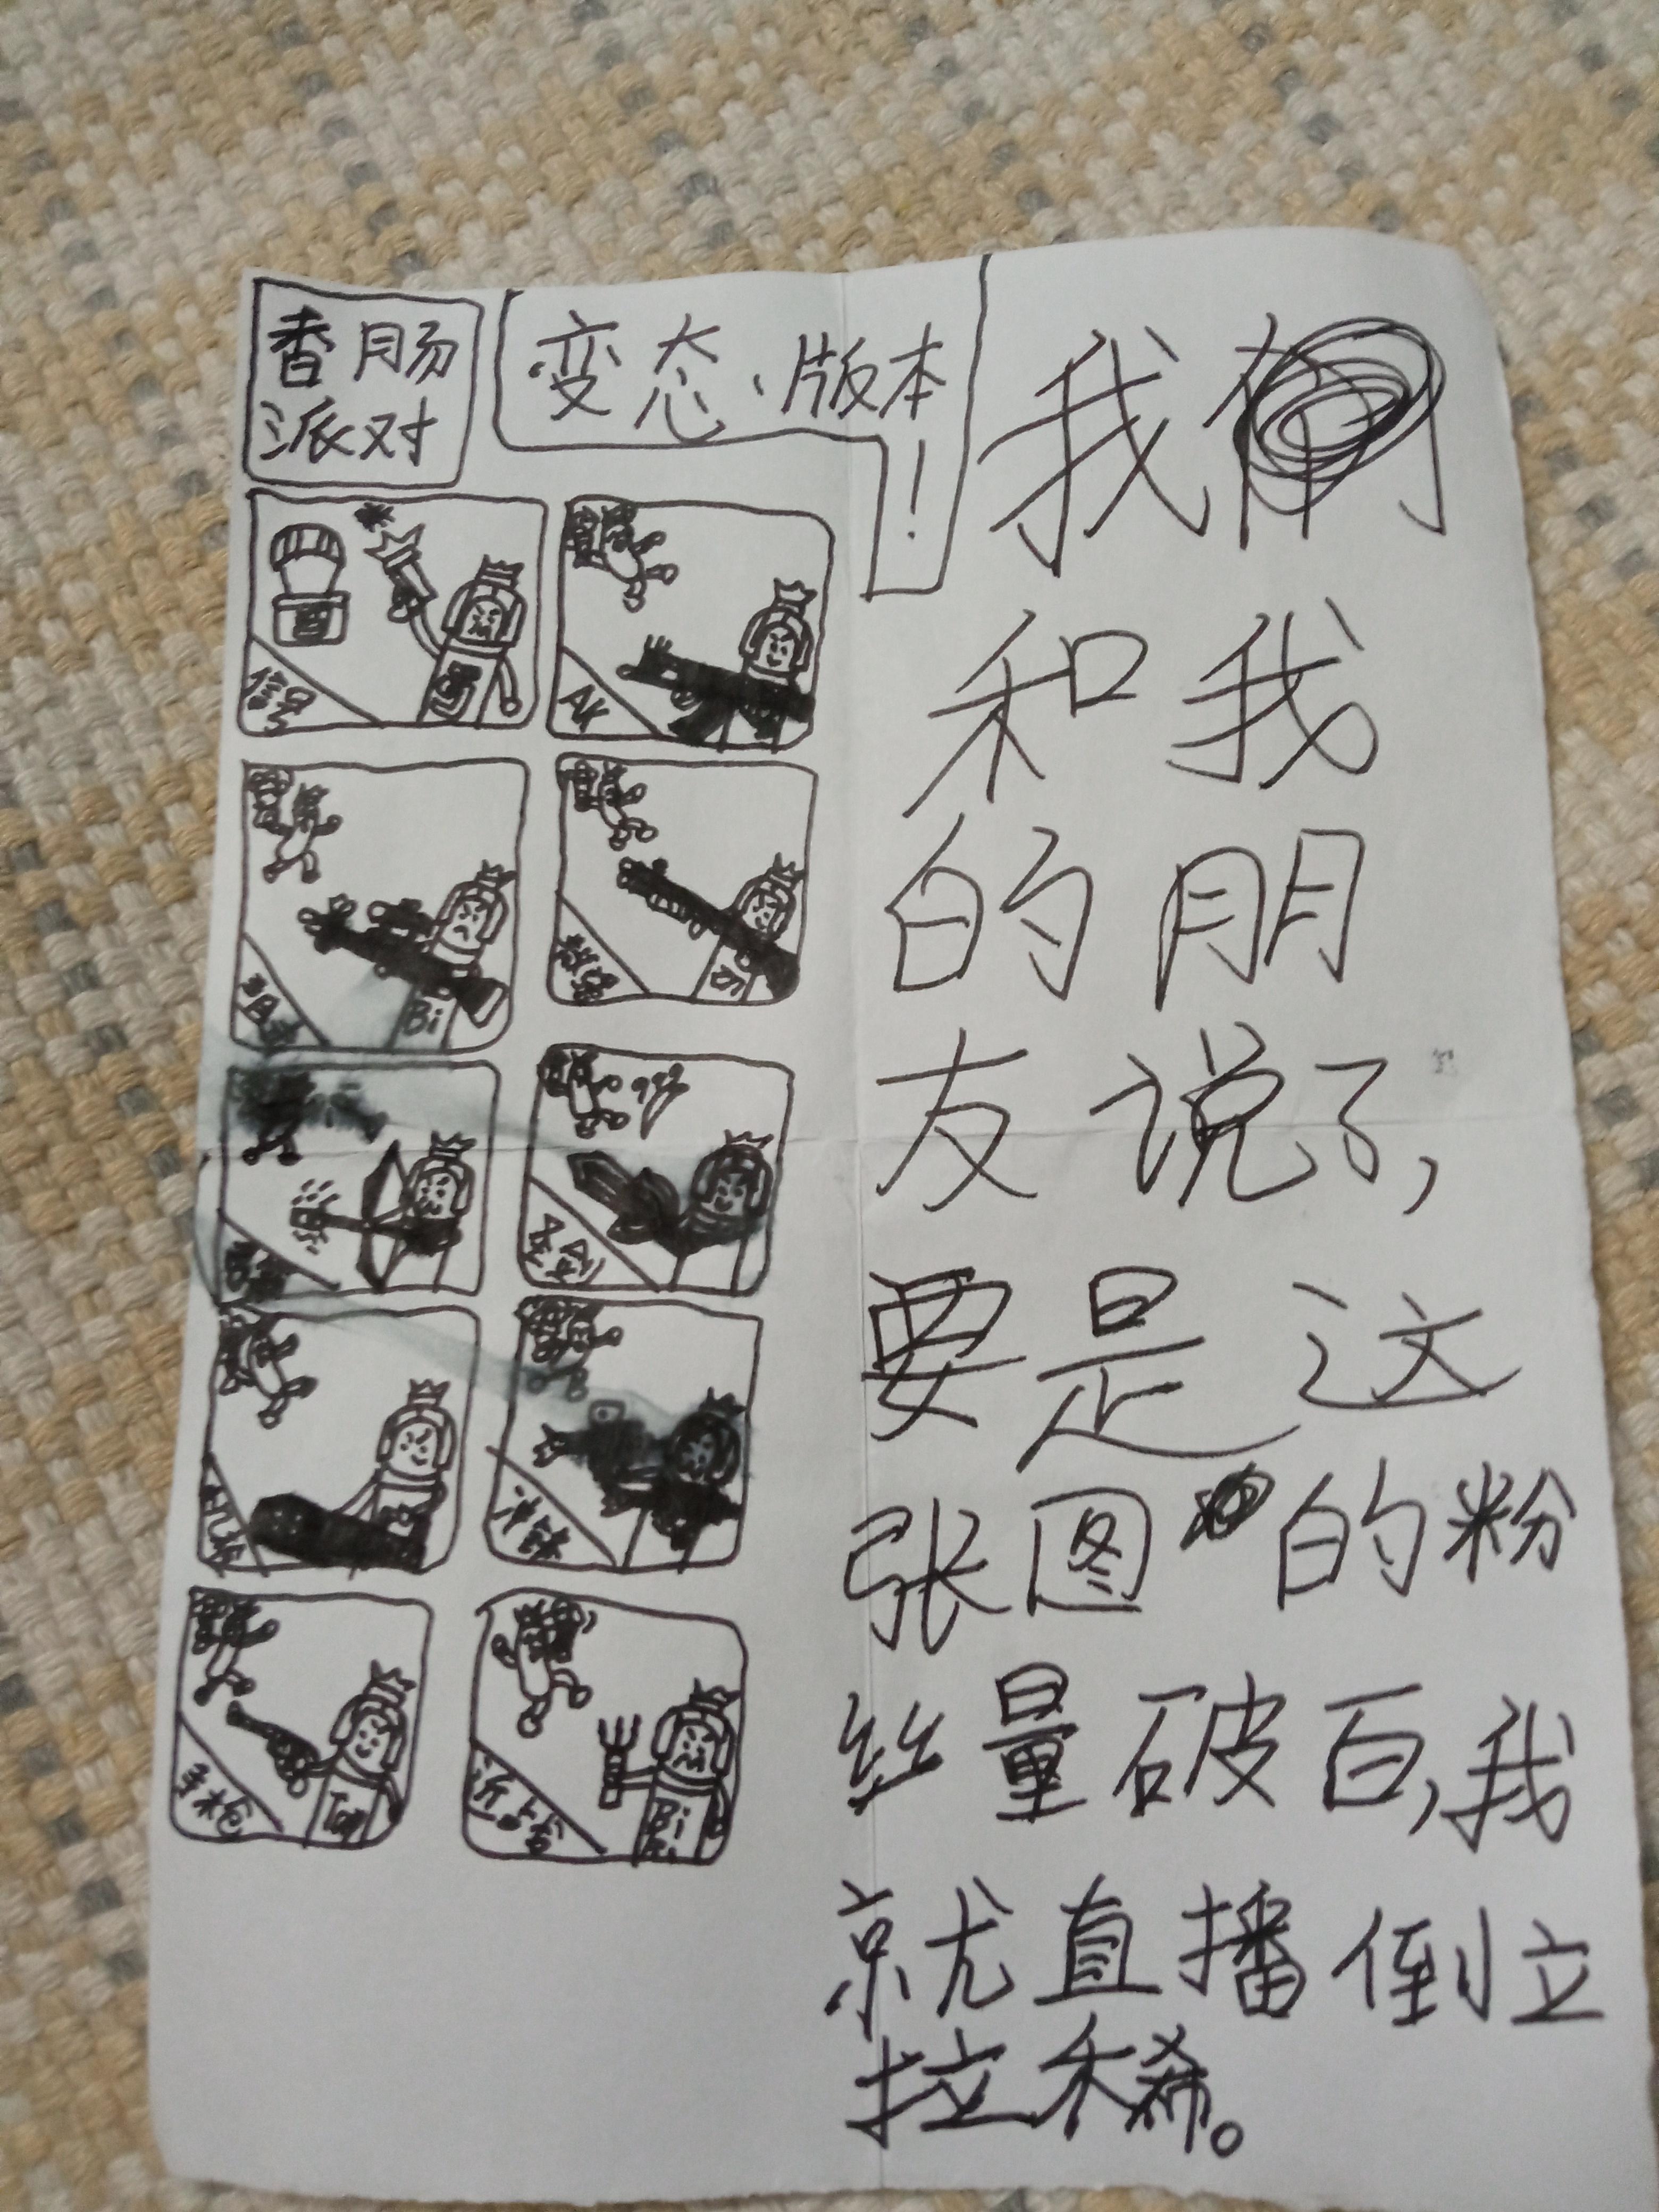 香肠
派对
变态、版本
！
信号
AK
Bi
手枪
Bi
我
和我
的朋
友说了,
要是这
张图的粉
丝量破百,我
就直播倒立
拉稀。